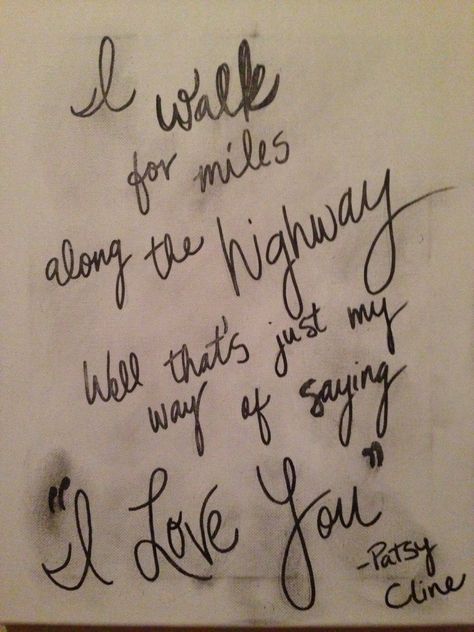 I walk
for miles
along the highway
Well that's just my
way of saying
"I Love You"
-Patsy
Cline